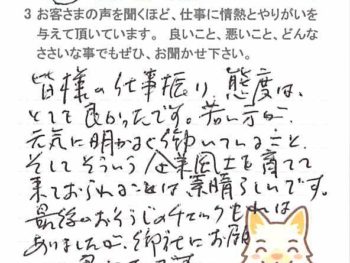 3 お客さまの声を聞くほど、仕事に情熱とやりがいを
与えて頂いています。 良いこと、悪いこと、どんな
ささいな事でもぜひ、お聞かせ下さい。
皆様の仕事振り、態度は、
とても良かったです。若い方が
元気に明かるく働いていること、
そしてそういう企業風土を育てて
来ておられることは素晴らしいです。
最後のおそうじのチェックもれは
ありましたが、御社にお願